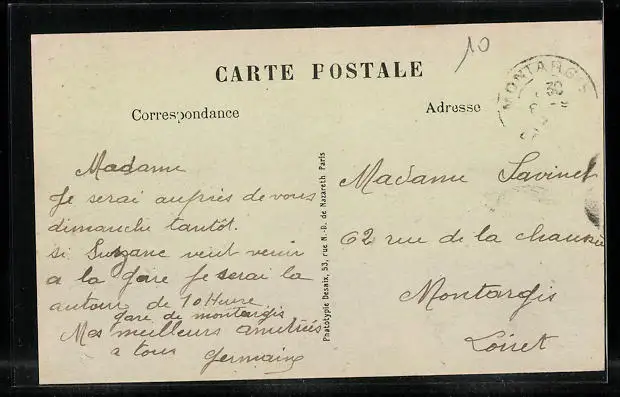 10
CARTE POSTALE
MONTARGIS
30
Correspondance
Adresse
Madame
Je serai aupres de vous
dimanche tantôt.
si Suzane veut venir
a la gare Je serai la
autour de 10 Heure
gare de montargis
Mes meilleurs amitiées
a tous Germaine
Phototypie Desaix, 53, rue N.-D. de Nazareth Paris
Madame Savinet
62 rue de la chaussée
Montargis
Loiret